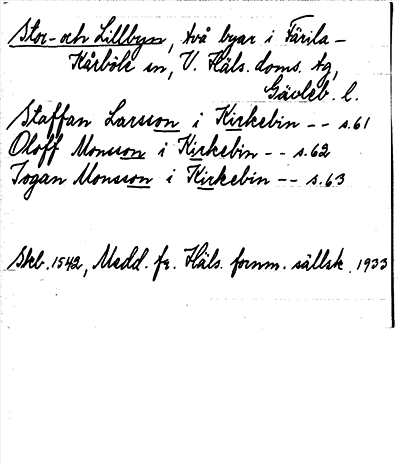 Stor- och Lillbyn, två byar i Färila-
Kårböle sn, V. Häls. doms. tg,
Gävleb. l.
Staffan Larsson i Kirkebin -- s.61
Oloff Monsson i Kirkebin -- s.62
Jogan Monsson i Kirkebin -- s.63
Skb. 1542, Medd. fr. Häls. fornm. sällsk. 1933